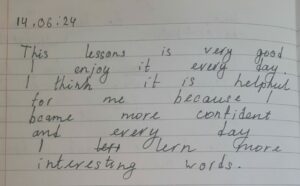 14.06.24
This lessons is very good
I enjoy it every day.
I think it is helpful
for me because I
bcame more confident
and every day
I lern more
interesting words.